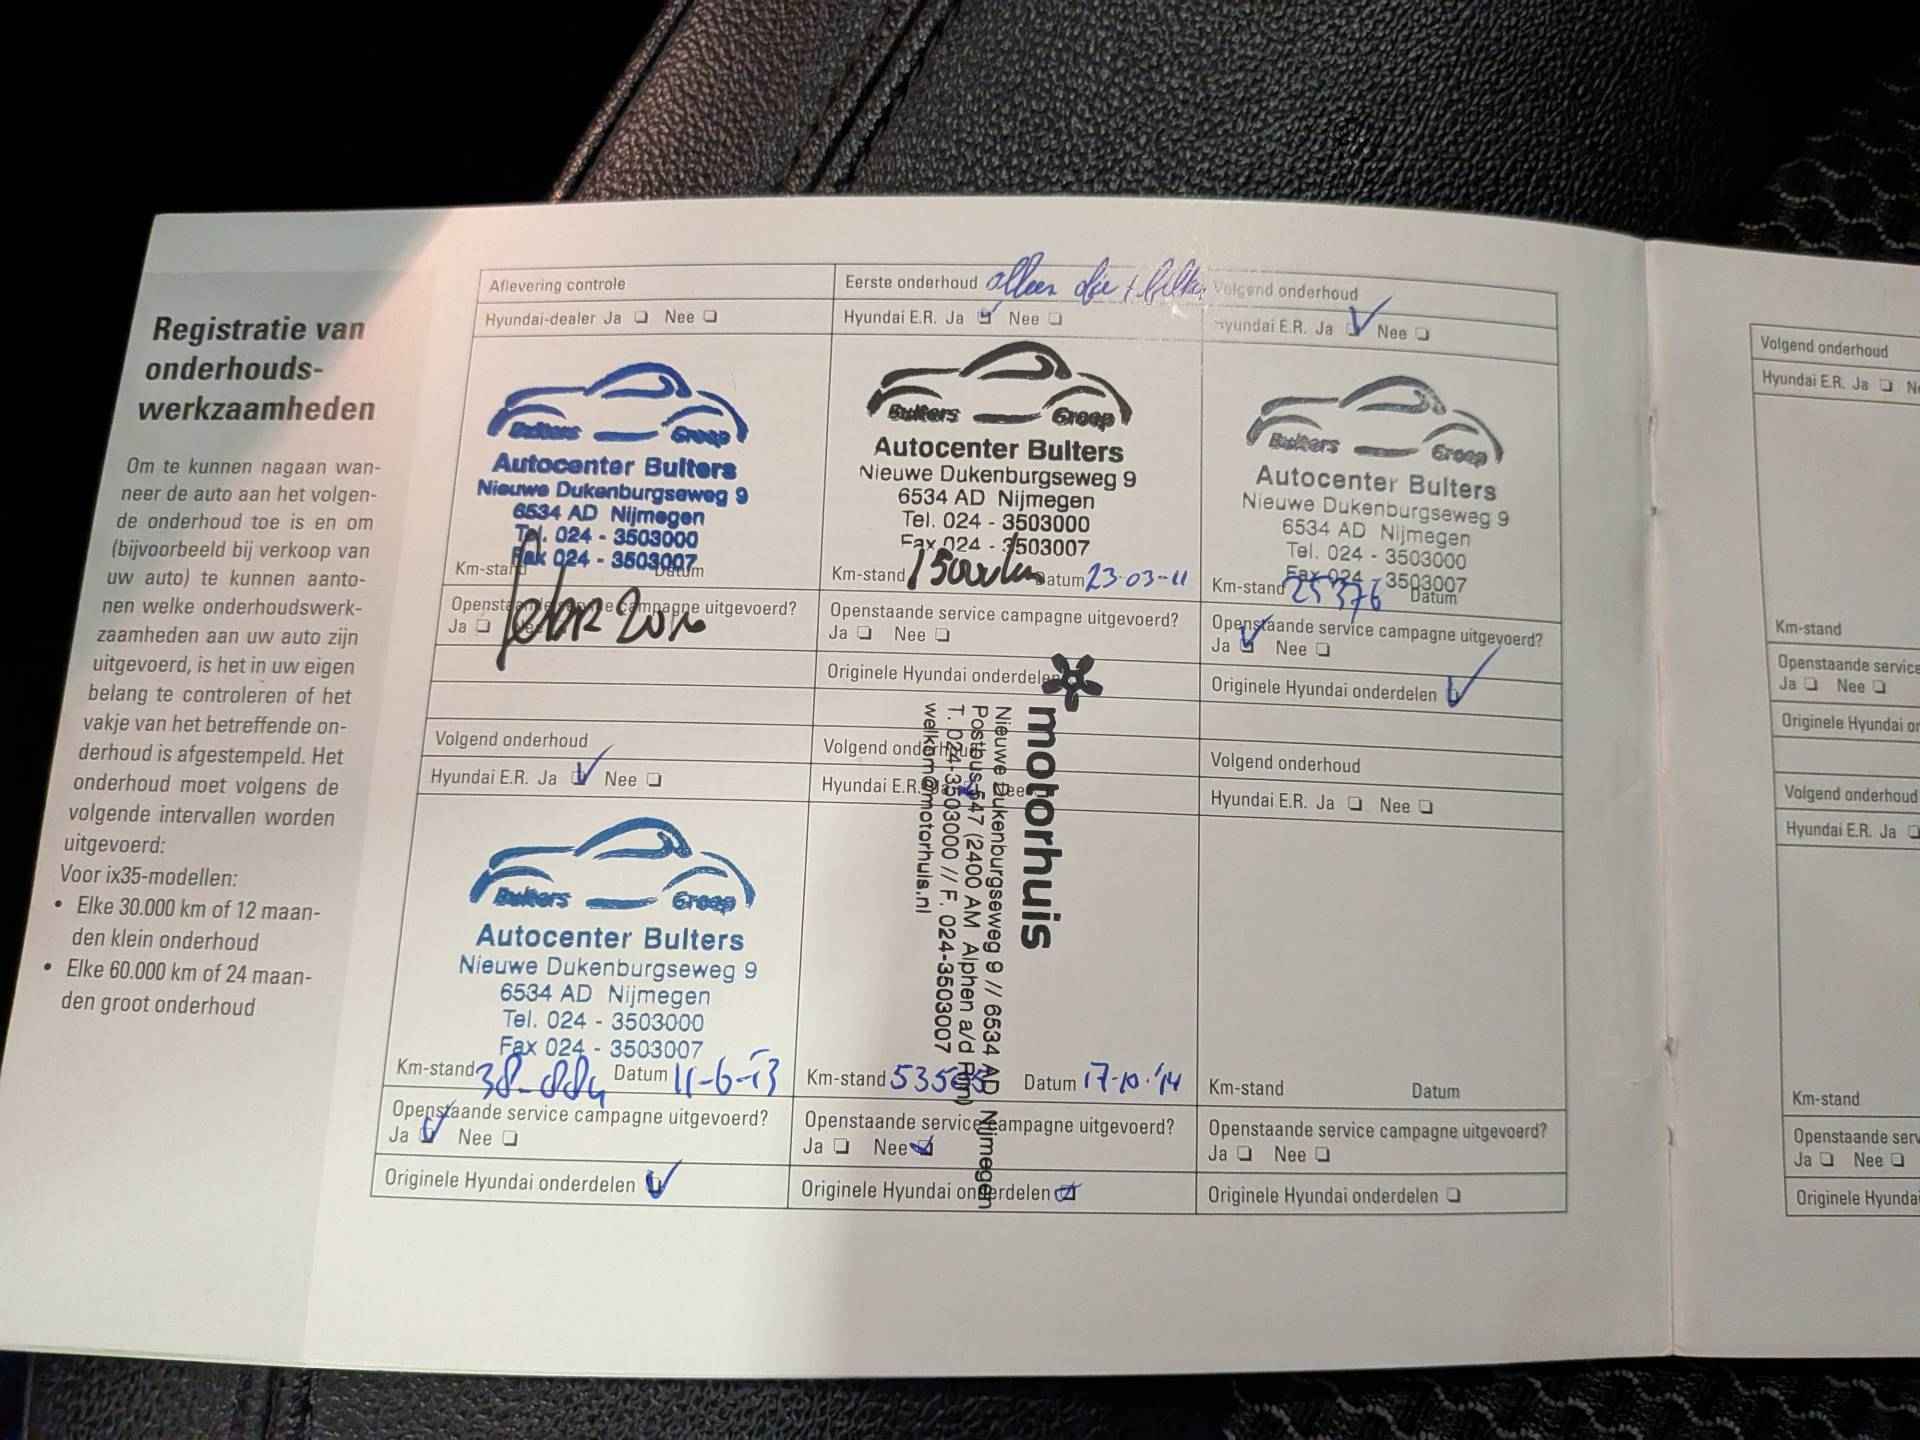 Registratie van
onderhouds-
werkzaamheden
Om te kunnen nagaan wan-
neer de auto aan het volgen-
de onderhoud toe is en om
(bijvoorbeeld bij verkoop van
uw auto) te kunnen aanto-
nen welke onderhoudswerk-
zaamheden aan uw auto zijn
uitgevoerd, is het in uw eigen
belang te controleren of het
vakje van het betreffende on-
derhoud is afgestempeld. Het
onderhoud moet volgens de
volgende intervallen worden
uitgevoerd:
Voor ix35-modellen:
• Elke 30.000 km of 12 maan-
den klein onderhoud
• Elke 60.000 km of 24 maan-
den groot onderhoud
Aflevering controle
Hyundai-dealer Ja Nee
Bulters Groep
Autocenter Bulters
Nieuwe Dukenburgseweg 9
6534 AD Nijmegen
Tel. 024 - 3503000
Fax 024 - 3503007
Km-stand Datum
Openstaande service campagne uitgevoerd?
Ja Nee
Eerste onderhoud alleen olie + filter
Hyundai E.R. Ja Nee
Bulters Groep
Autocenter Bulters
Nieuwe Dukenburgseweg 9
6534 AD Nijmegen
Tel. 024 - 3503000
Fax 024 - 3503007
Km-stand 15000km Datum 23-03-11
Openstaande service campagne uitgevoerd?
Ja Nee
Originele Hyundai onderdelen
Volgend onderhoud
Hyundai E.R. Ja Nee
Bulters Groep
Autocenter Bulters
Nieuwe Dukenburgseweg 9
6534 AD Nijmegen
Tel. 024 - 3503000
Fax 024 - 3503007
Km-stand 25376 Datum
Openstaande service campagne uitgevoerd?
Ja Nee
Originele Hyundai onderdelen
Volgend onderhoud
Hyundai E.R. Ja Nee
Bulters Groep
Autocenter Bulters
Nieuwe Dukenburgseweg 9
6534 AD Nijmegen
Tel. 024 - 3503000
Fax 024 - 3503007
Km-stand 38-884 Datum 11-6-13
Openstaande service campagne uitgevoerd?
Ja Nee
Originele Hyundai onderdelen
Volgend onderhoud
Hyundai E.R. Ja Nee
motorhuis
Nieuwe Dukenburgseweg 9 // 6534 AD Nijmegen
Postbus 547 (2400 AM Alphen a/d Rijn)
T. 024-3503000 // F. 024-3503007
welkom@motorhuis.nl
Km-stand Datum 17-10-'14
Openstaande service campagne uitgevoerd?
Ja Nee
Originele Hyundai onderdelen
Volgend onderhoud
Hyundai E.R. Ja Nee
Km-stand Datum
Openstaande service campagne uitgevoerd?
Ja Nee
Originele Hyundai onderdelen
Volgend onderhoud
Hyundai E.R. Ja Ne
Km-stand
Openstaande service
Ja Nee
Originele Hyundai on
Volgend onderhoud
Hyundai E.R. Ja
Km-stand
Openstaande serv
Ja Nee
Originele Hyundai